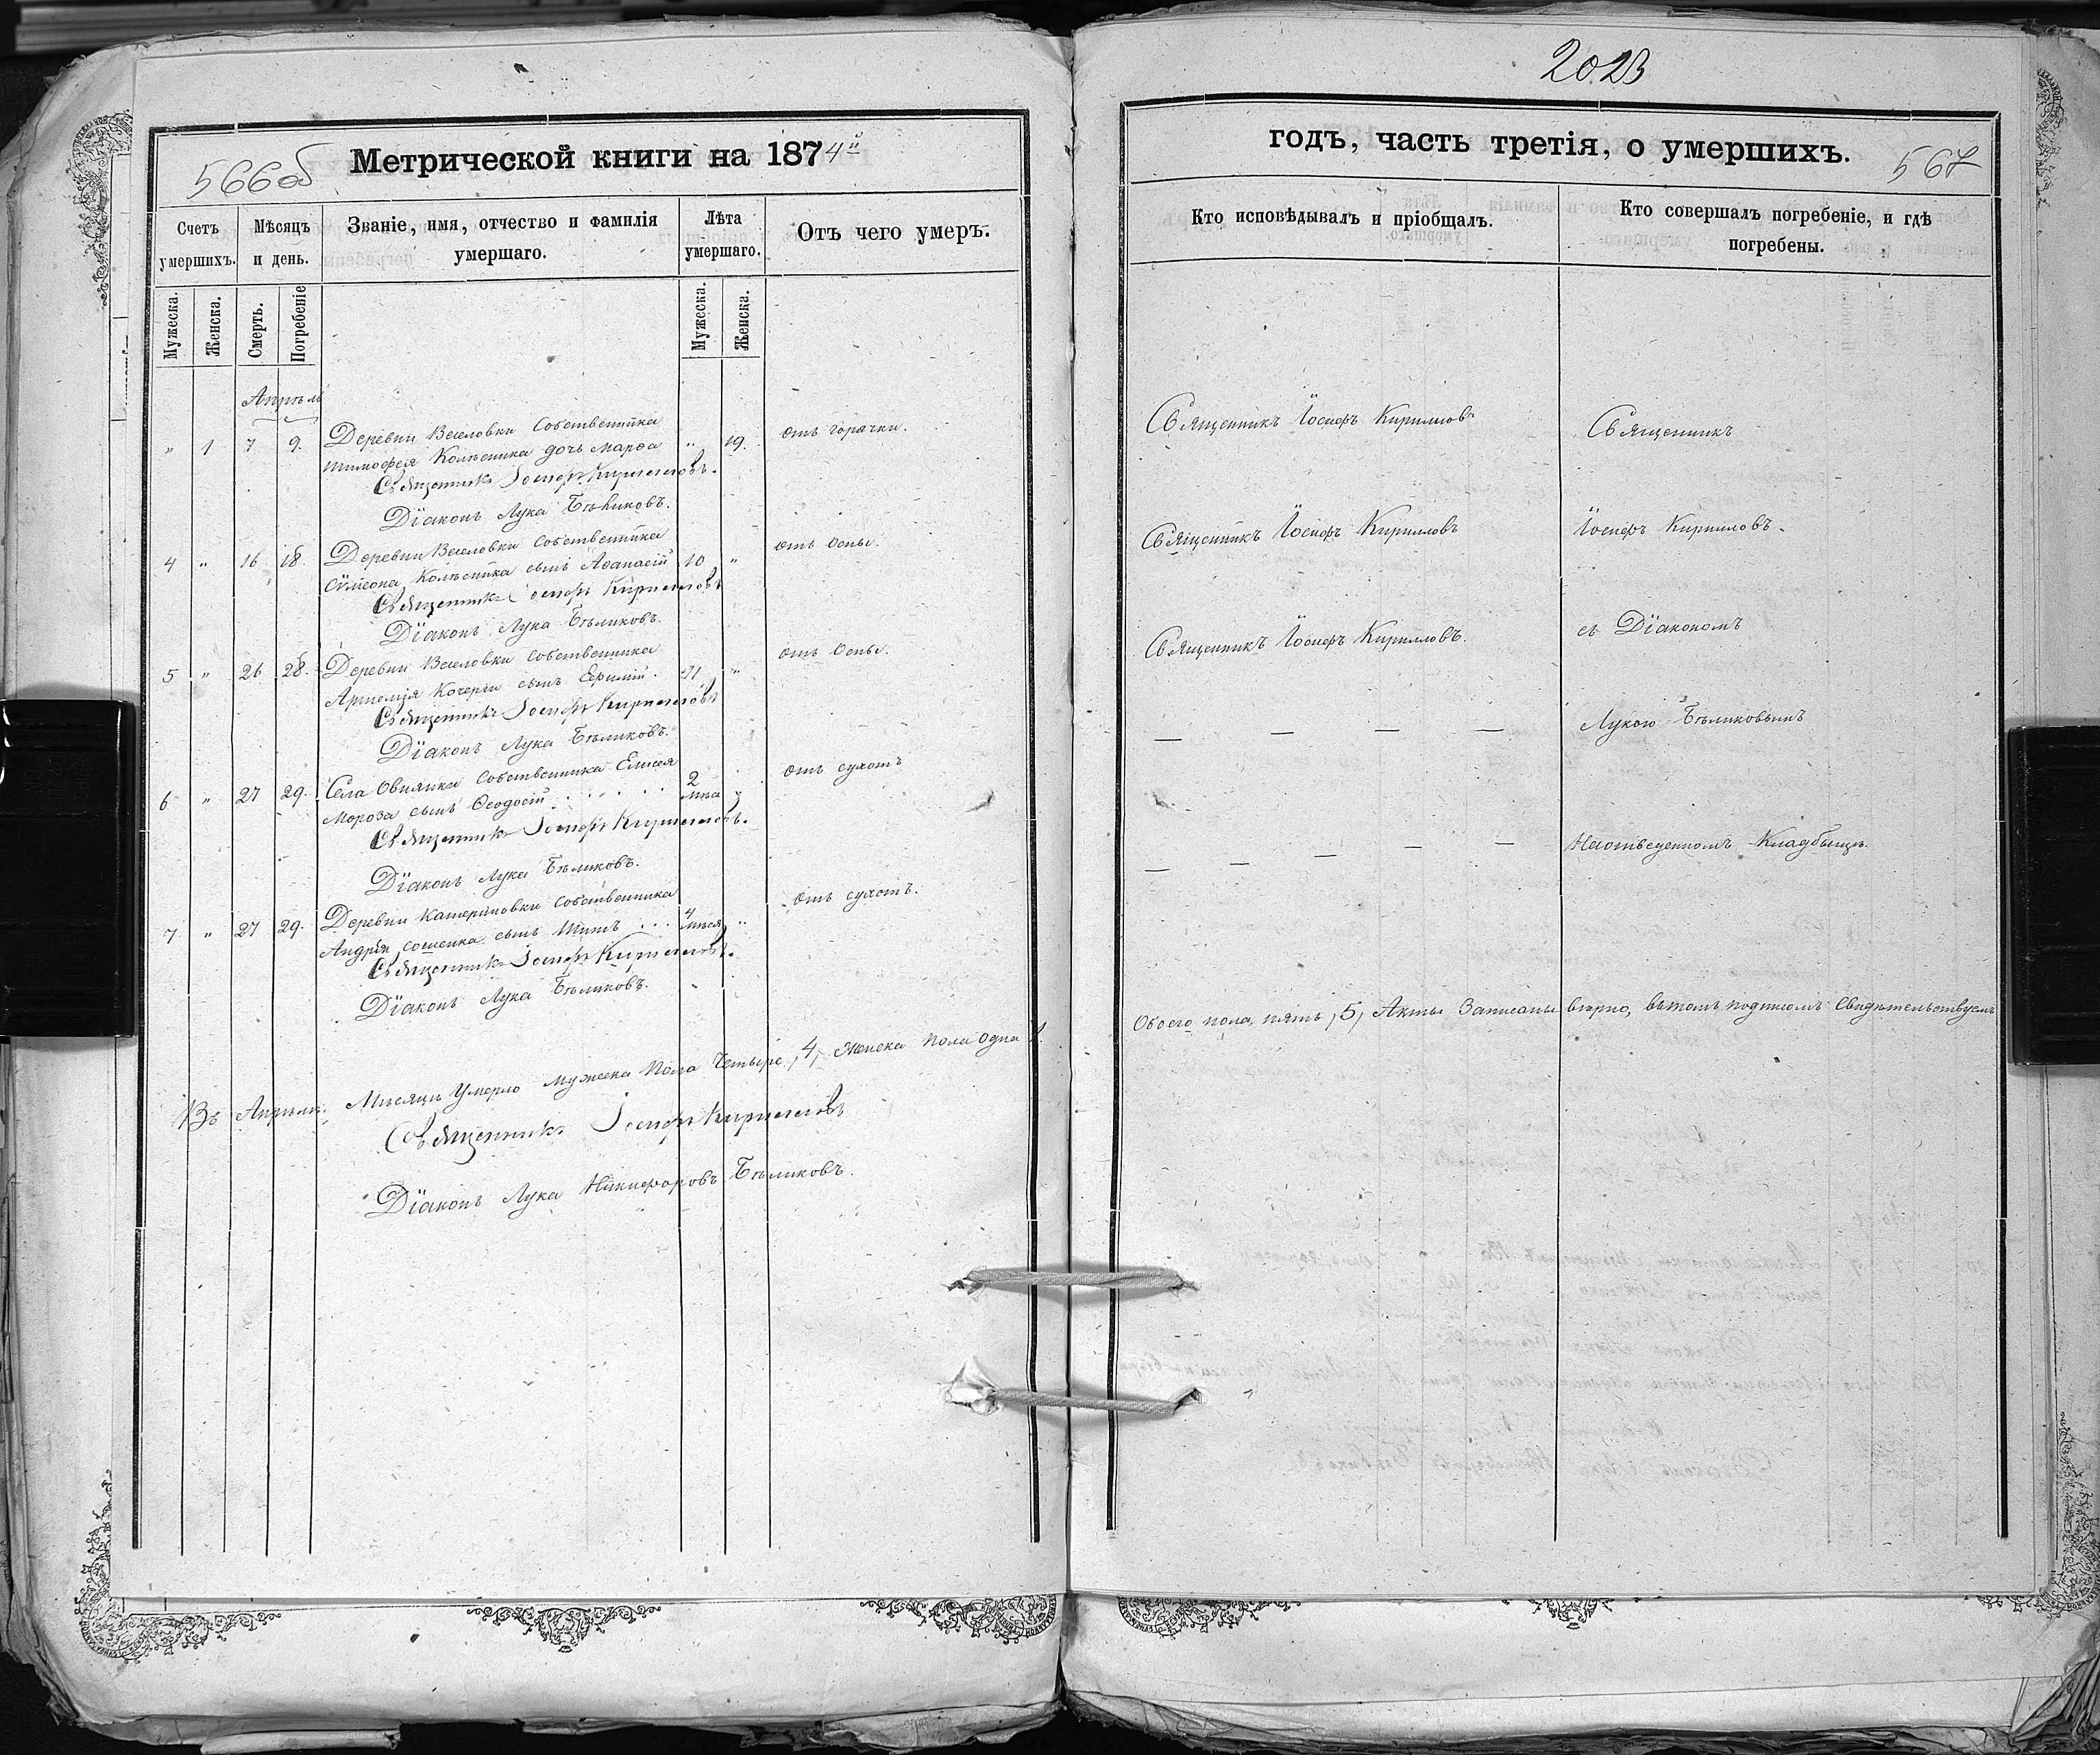 566об
Метрической книги на 1874й
Счетъ умершихъ.
Мѣсяцъ и день.
Званіе, имя, отчество и фамилія умершаго.
Лѣта умершаго.
Отъ чего умеръ.
Мужеска.
Женска.
Смерть.
Погребеніе
Мужеска.
Женска.
Апрѣль
" 1 7 9. Деревни Веселовки Собственника " 19. отъ горячки.
Тимофея Колѣсника дочь Марѳа
Священникъ Іосифъ Кирилловъ.
Діаконъ Лука Бѣликовъ.
4 " 16 18 Деревни Веселовки Собственника отъ Оспы.
Сѵмеона Колѣсника сынъ Аѳанасій 10 "
Священникъ Іосифъ Кирилловъ
Діаконъ Лука Бѣликовъ.
5 " 26 28. Деревни Веселовки Собственника отъ Оспы.
Артемія Кочерги сынъ "
Священникъ Іосифъ Кирилловъ
Діаконъ Лука Бѣликовъ.
6 " 27 29. Села Собственника Елисея 2 отъ сухотъ
Мороза сынъ Ѳеодосій "
Священникъ Іосифъ Кирилловъ.
Діаконъ Лука Бѣликовъ.
7 " 27 29. Деревни Катериновки Собственника 4 отъ сухотъ.
Андрея сынъ Титъ "
Священникъ Іосифъ Кирилловъ.
Діаконъ Лука Бѣликовъ.
Въ Апрѣлѣ Мѣсяцѣ Умерло мужеска пола Четыре, 4, Женска пола одна 1.
Священникъ Іосифъ Кирилловъ
Діаконъ Лука Никифоровъ Бѣликовъ.
2023
годъ, часть третія, о умершихъ.
567
Кто исповѣдывалъ и пріобщалъ.
Кто совершалъ погребеніе, и гдѣ погребены.
Священникъ Іосифъ Кирилловъ
Священникъ
Священникъ Іосифъ Кирилловъ
Іосифъ Кирилловъ.
Священникъ Іосифъ Кирилловъ.
съ Діакономъ
— — — —
Лукою Бѣликовымъ
— — — — —
На отведенномъ Кладбищѣ.
Обоего пола, пять, 5, Акты Записаны вѣрно, въ томъ подписомъ Свидѣтельствуемъ